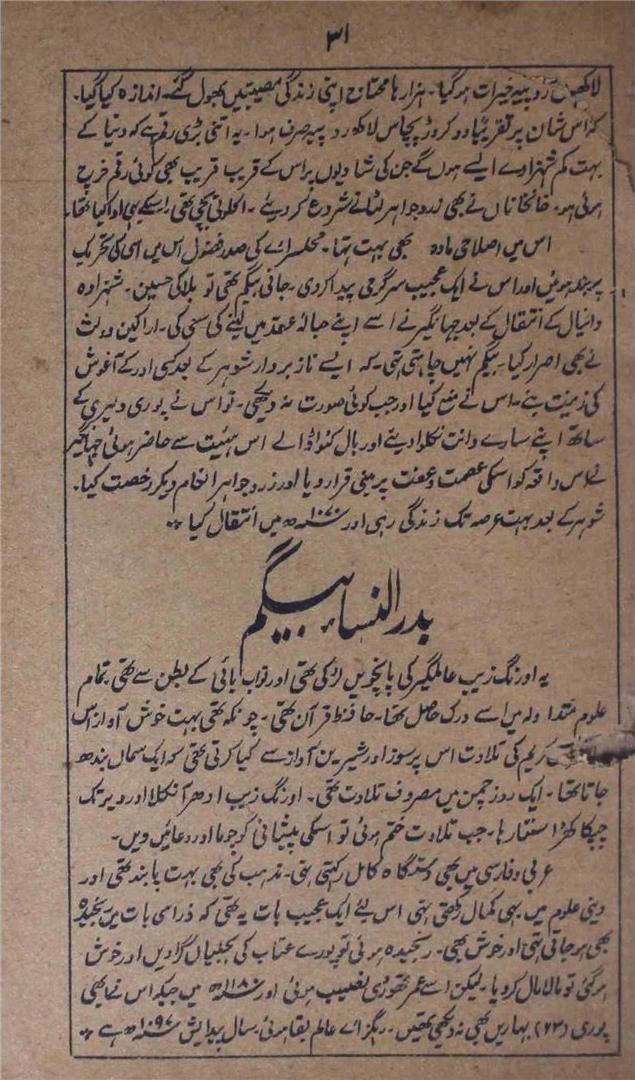 ۳۱
لاکھوں روپیہ خیرات ہوگیا۔ ہزارہا محتاج اپنی زندگی مصیبتیں بھول گئے۔ اندازہ کیا گیا۔
کہ اس شان پر تقریباً دو کروڑ پچاس لاکھ روپیہ صرف ہوا۔ یہ اتنی بڑی رقم ہے کہ دنیا کے
بہت کم شہزادے ایسے ہوں گے جن کی شادیوں پر اس کے قریب قریب بھی کوئی رقم خرچ
ہوئی ہو۔ خانخاناں نے بھی زر و جواہر لٹانے شروع کر دیئے۔ اکلوتی بچی تھی
اس میں اصلاحی مادہ بھی بہت تھا۔ محلسراے کی صدر فضول اس میں اسی کی تحریک
پر بند ہوئیں اور اس نے ایک عجیب سرگرمی پیدا کر دی۔ جانی بیگم تھی تو بلا کی حسین۔ شہزادہ
دانیال کے انتقال کے بعد جہانگیر نے اسے اپنے حبالۂ عقد میں لینے کی سعی کی۔ اراکین دولت
نے بھی اصرار کیا۔ بیگم نہیں چاہتی تھی۔ کہ ایسے ناز بردار شوہر کے بعد کسی اور کے آغوش
کی زینت بنے۔ اس نے منع کیا اور جب کوئی صورت نہ دیکھی۔ تو اس نے پوری دلیری کے
ساتھ اپنے سارے دانت نکلوا دیئے اور بال کٹوا ڈالے اس ہئیت سے حاضر ہوئی جہانگیر
نے اس واقعہ کو اسکی عصمت و عفت پر مبنی قرار دیا اور زر و جواہر انعام دیکر رخصت کیا۔
شوہر کے بعد بہت عرصہ تک زندگی رہی اور ۱۰۷۰ھ میں انتقال کیا ٭
بدر النساء بیگم
یہ اورنگ زیب عالمگیر کی پانچویں لڑکی تھی اور نواب بائی کے بطن سے تھی۔ تمام
علوم متداولہ میں اسے درک حاصل تھا۔ حافظ قرآن تھی۔ چونکہ تھی بہت خوش آواز اس
کریم کی تلاوت اس پرسوز اور شیریں آواز سے کیا کرتی تھی کہ ایک سماں بندھ
جاتا تھا۔ ایک روز چمن میں مصروف تلاوت تھی۔ اورنگ زیب ادھر آنکلا اور دیر تک
چپکا کھڑا سنتا رہا۔ جب تلاوت ختم ہوئی تو اسکی پیشانی کو چوما اور دعائیں دیں۔
عربی و فارسی میں بھی دستگاہ کامل رکھتی تھی۔ مذہب کی بھی بہت پابند تھی اور
دینی علوم میں بھی کمال رکھتی تھی اس لئے ایک عجیب بات یہ تھی کہ ذراسی بات پر رنجیدہ
بھی ہو جاتی تھی اور خوش بھی۔ رنجیدہ ہوئی تو پورے عتاب کی بجلیاں گرادیں اور خوش
ہوگئی تو مالا مال کر دیا۔ لیکن اسے عمر تھوڑی نصیب ہوئی اور ۱۱۸۰ھ میں جبکہ اس نے ابھی
پوری (۲۳) بہاریں بھی نہ دیکھی تھیں۔ رہگراے عالم بقا ہوئی۔ سال پیدائش ۱۰۹۷ھ ہے ٭